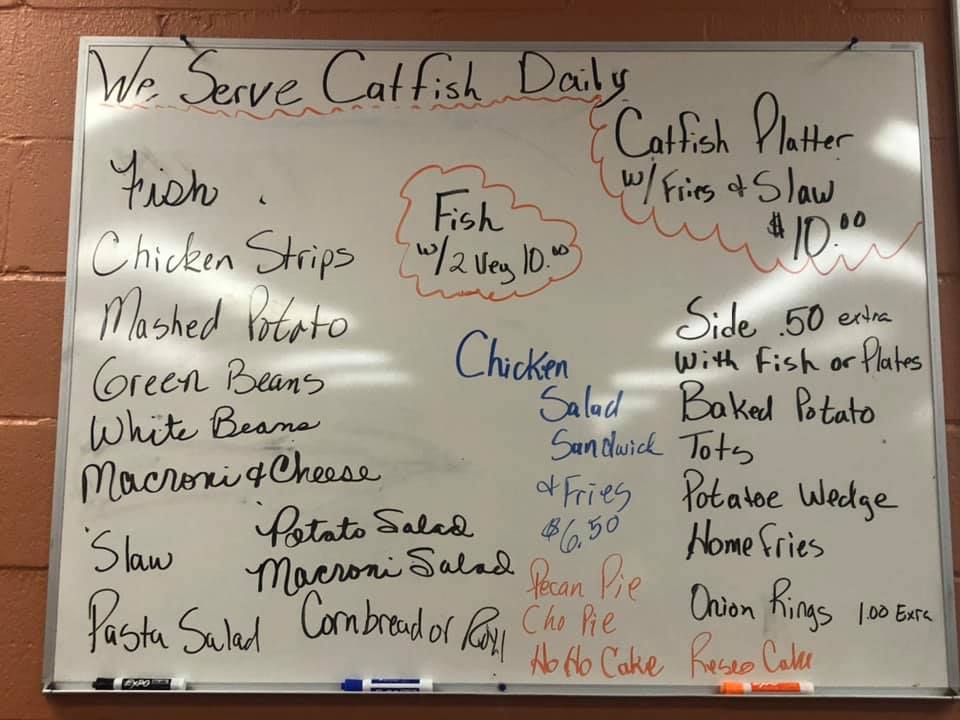 We Serve Catfish Daily
Catfish Platter
w/ Fries & Slaw
$10.00
Fish
w/2 Veg 10.00
Fish
Chicken Strips
Mashed Potato
Green Beans
White Beans
Macroni & Cheese
Slaw
Potato Salad
Macroni Salad
Pasta Salad
Cornbread or Roll
Chicken
Salad
Sandwick
& Fries
$6.50
Pecan Pie
Cho Pie
Ho Ho Cake
Side .50 extra
With Fish or Plates
Baked Potato
Tots
Potatoe Wedge
Home Fries
Onion Rings 1.00 Extra
Reseo Cake
EXPO